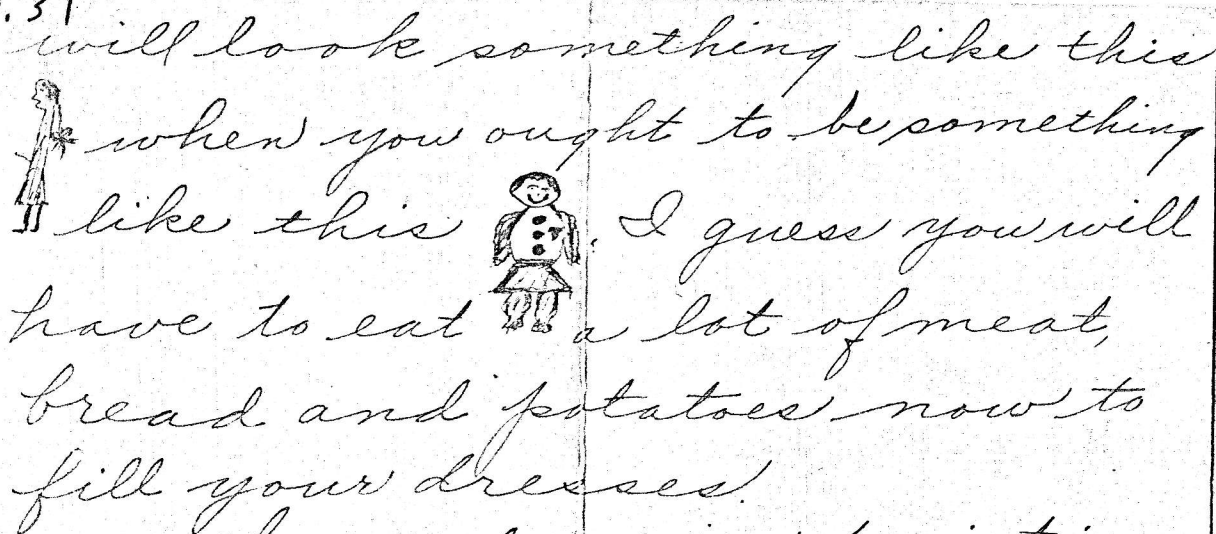 . 31
will look something like this
when you ought to be something
like this . I guess you will
have to eat a lot of meat,
bread and potatoes now to
fill your dresses.